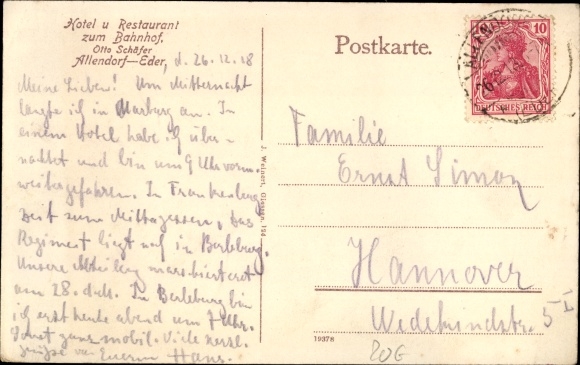 Hotel u Restaurant
zum Bahnhof.
Otto Schäfer
Allendorf—Eder, d. 26.12.18
Meine Lieben! Um Mitternacht
langte ich in Marburg an. In
einem Hotel habe ich über-
nachtet und bin um 9 Uhr vorm.
weitergefahren. In Frankenberg
Zeit zum Mittagessen, das
Regiment liegt noch in Berleburg.
Unsere Abteilung marschiert erst
am 28. d. Mts. In Berleburg bin
ich erst heute abend um 7 Uhr.
ganz mobil. Viele herzl.
Grüße von Eurem Hans.
J. Weinert, Giessen. 194
Postkarte.
10
DEUTSCHES REICH
ALLENDORF
Familie
Ernst Simon
Hannover
Wedekindstr. 5
19378
20G